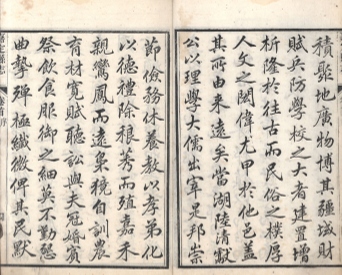 積聚地廣物博其疆域財
賦兵防學校之大者建置增
析隆於往古而民俗之樸厚
人文之閎偉尤甲於他邑蓋
其所由來遠矣當湖陸清獻
公以理學大儒出宰是邦崇
節儉務休養教以孝弟化
以德禮除稂莠而殖嘉禾
親鸞鳳而遠梟鴟自訓農
育材寬賦聽訟與夫冠婚賓
祭飲食服御之細莫不懃懇
曲摯殫極纖微俾其民默